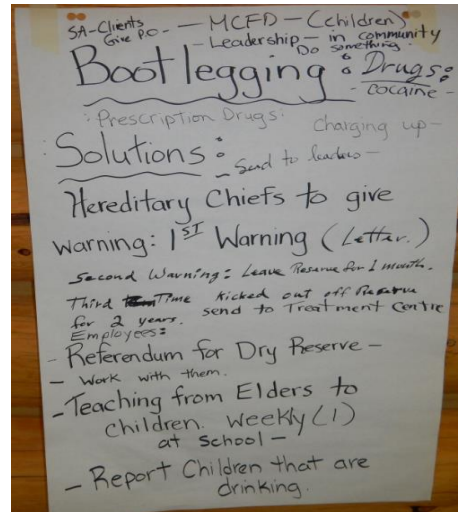 SA-Clients — MCFD — (children)
Give P.O. - - Leadership - in community
Do something.
Bootlegging : Drugs:
- cocaine -
: Prescription Drugs: Charging up -
Solutions :
- Send to leaders -
Hereditary Chiefs to give
warning: 1ST Warning (Letter.)
Second Warning: Leave Reserve for 1 month.
Third Time Kicked out off Reserve
for 2 years. send to Treatment Centre
Employees:
- Referendum for Dry Reserve -
- Work with them.
- Teaching from Elders to
children. weekly (1)
at school -
- Report Children that are
drinking.